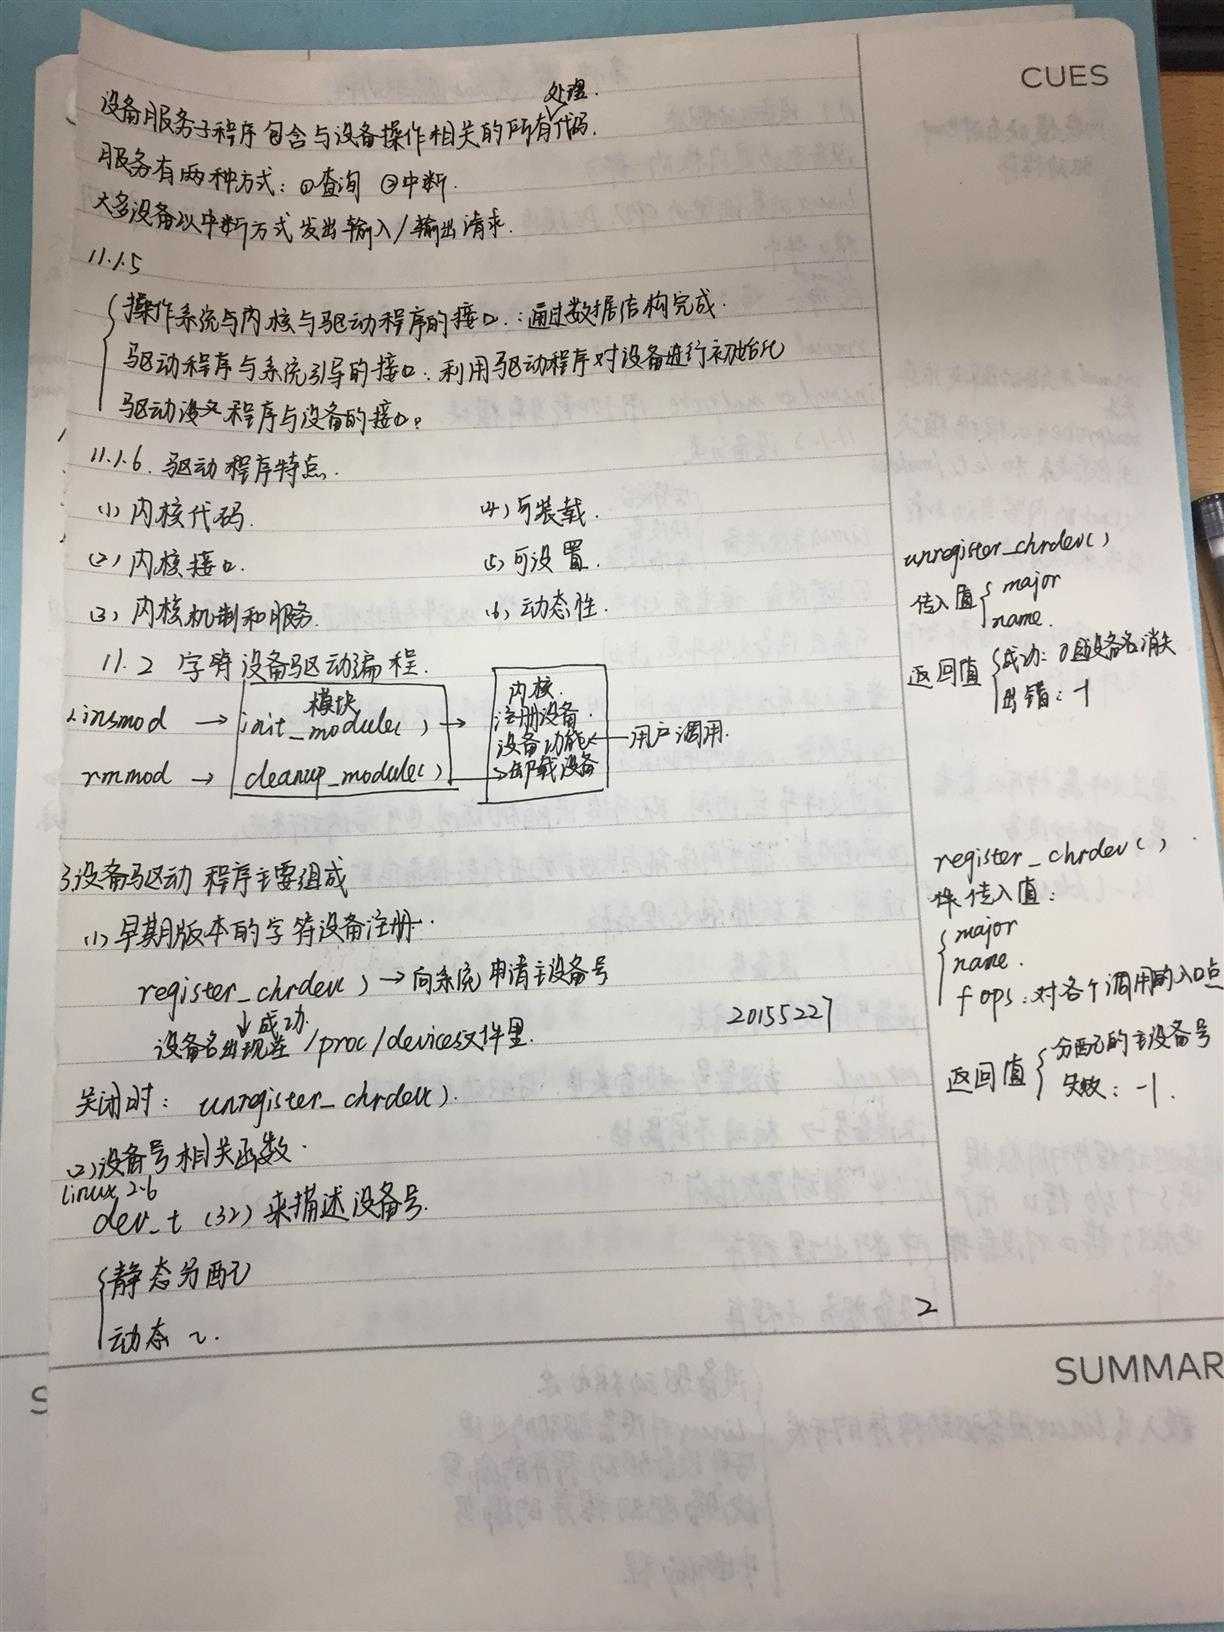 CUES
设备服务子程序包含与设备操作相关的所有处理代码.
服务有两种方式: ①查询 ②中断.
大多设备以中断方式发出输入/输出请求.
11.1.5
操作系统与内核与驱动程序的接口.:通过数据结构完成.
驱动程序与系统引导的接口:利用驱动程序对设备进行初始化
驱动程序与设备的接口。
11.1.6. 驱动程序特点.
(1) 内核代码. (4) 可装载.
(2) 内核接口. (5) 可设置.
(3) 内核机制和服务. (6) 动态性.
11.2 字符设备驱动编程.
模块
内核.
2.insmod → init_module() → 注册设备.
设备功能 ← 用户调用.
rmmod → cleanup_module() → 卸载设备
3.设备驱动程序主要组成
(1) 早期版本的字符设备注册.
register_chrdev() → 向系统申请主设备号
↓成功.
设备名出现在 /proc/devices文件里.
20155227
关闭时: unregister_chrdev().
(2) 设备号相关函数.
linux 2.6
dev_t (32) 来描述设备号.
静态分配
动态 ~.
2
unregister_chrdev()
传入值 major
name.
返回值 成功: 0且设备名消失
出错: -1
register_chrdev()
传入值:
major
name.
fops: 对各个调用的入口点
返回值 分配的主设备号
失败: -1.
SUMMAR
S